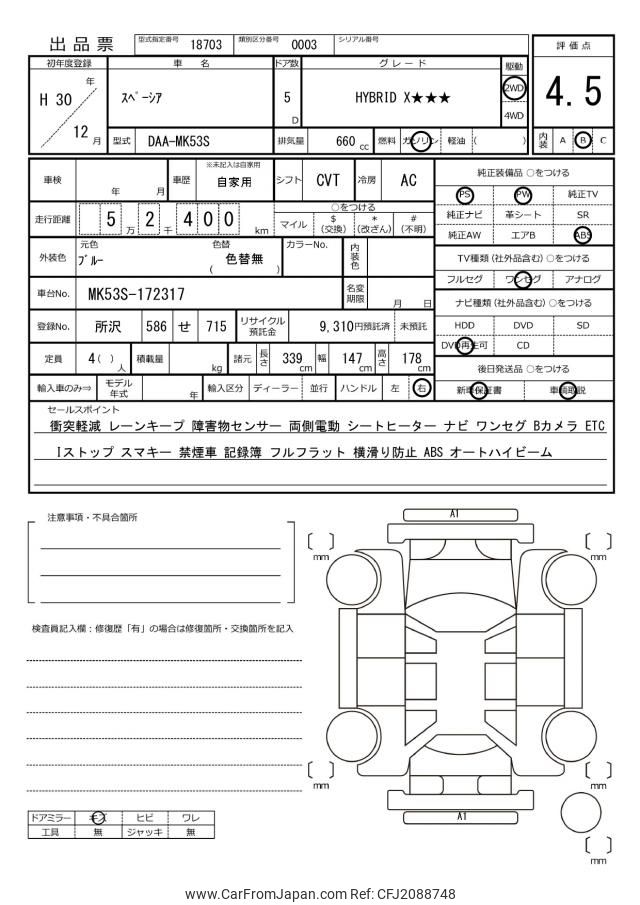 出品票 型式指定番号 18703 類別区分番号 0003 シリアル番号
初年度登録 車名 ドア数 グレード 駆動 評価点
H 30 年 12 月 スペーシア 5 D HYBRID X★★★ 2WD 4WD 4.5
型式 DAA-MK53S 排気量 660 cc 燃料 ガソリン 軽油 ( ) 内装 A B C
車検 年 月 車歴 ※未記入は自家用 自家用 シフト CVT 冷房 AC
純正装備品 ○をつける
PS PW 純正TV
純正ナビ 革シート SR
純正AW エアB ABS
走行距離 5 2 万 4 千 0 0 km
○をつける
マイル $ (交換) * (改ざん) # (不明)
外装色 元色 ブルー 色替 ( 色替無 ) カラーNo. 内装色
TV種類 (社外品含む) ○をつける
フルセグ ワンセグ アナログ
車台No. MK53S-172317 名変期限 月 日
ナビ種類 (社外品含む) ○をつける
HDD DVD SD
DVD再生可 CD
登録No. 所沢 586 せ 715 リサイクル預託金 9,310円預託済 未預託
定員 4( ) 人 積載量 kg 諸元 長さ 339 cm 幅 147 cm 高さ 178 cm
後日発送品 ○をつける
新車保証書 車輌取説
輸入車のみ⇒ モデル年式 年 輸入区分 ディーラー 並行 ハンドル 左 右
セールスポイント
衝突軽減 レーンキープ 障害物センサー 両側電動 シートヒーター ナビ ワンセグ Bカメラ ETC
Iストップ スマキー 禁煙車 記録簿 フルフラット 横滑り防止 ABS オートハイビーム
注意事項・不具合箇所
検査員記入欄：修復歴「有」の場合は修復箇所・交換箇所を記入
A1
mm
mm
mm
mm
A1
mm
ドアミラー キズ ヒビ ワレ
工具 無 ジャッキ 無
www.CarFromJapan.com Ref: CFJ2088748